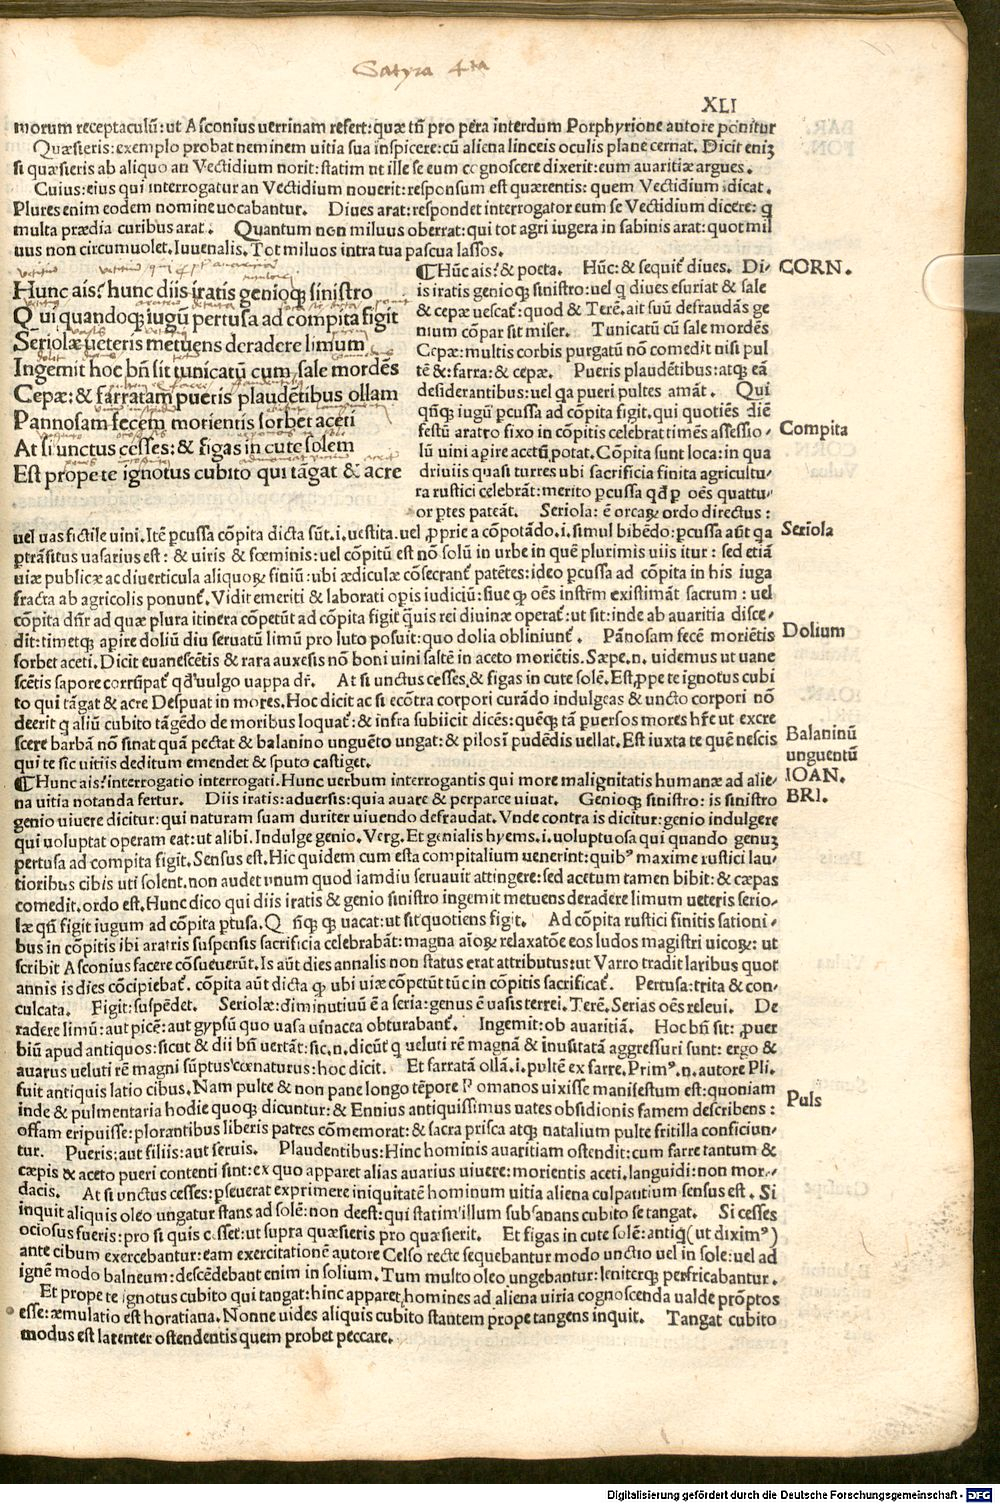 Satyra 4ta
XLI
morum receptaculū: ut Asconius uerrinam refert: quæ tñ pro pera interdum Porphyrione autore ponitur
Quæsieris: exemplo probat neminem uitia sua inspicere: cū aliena linceis oculis plane cernat. Dicit eniȝ
si quæsieris ab aliquo an Vectidium norit: statim ut ille se eum cognoscere dixerit: eum auaritiæ argues.
Cuius: eius qui interrogatur an Vectidium nouerit: responsum est quærentis: quem Vectidium dicat.
Plures enim eodem nomine uocabantur. Diues arat: respondet interrogator eum se Vectidium dicere: q
multa prædia curibus arat. Quantum non miluus oberrat: qui tot agri iugera in sabinis arat: quot mil
uus non circumuolet. Iuuenalis. Tot miluos intra tua pascua lassos.
Hunc ais? hunc diis iratis genioqȝ sinistro
Qui quandoqȝ iugū pertusa ad compita figit
Seriolæ ueteris metuens deradere limum
Ingemit hoc bñ sit tunicatū cum sale mordēs
Cepæ: & farratam pueris plaudētibus ollam
Pannosam fecem morientis sorbet aceti
At si unctus cesses: & figas in cute solem
Est prope te ignotus cubito qui tāgat & acre
¶Hūc ais? & poeta. Hūc: & sequit᷑ diues. Di-
is iratis genioqȝ sinistro: uel q diues esuriat & sale
& cepæ uescat᷑: quod & Terē. ait suū defraudās ge
nium cōpar sit miser. Tunicatū cū sale mordēs
Cepæ: multis corbis purgatū nō comedit nisi pul
tē &: farra: & cepæ. Pueris plaudētibus: atqȝ eā
desiderantibus: uel qa pueri pultes amāt. Qui
qñqȝ iugū pcussa ad cōpita figit. qui quotiēs diē
festū aratro fixo in cōpitis celebrat timēs assessio-
lū uini apire acetū potat. Cōpita sunt loca: in qua
driuiis quasi turres ubi sacrificia finita agricultu-
ra rustici celebrāt: merito pcussa qd p oēs quattu-
or ptes pateāt. Seriola: ē orcaꝝ ordo directus:
CORN.
Compita
uel uas fictile uini. Itē pcussa cōpita dicta sūt. i. uestita. uel ꝓprie a cōpotādo. i. simul bibēdo: pcussa aūt qa
ptrāsitus uasarius est: & uiris & fœminis: uel cōpitū est nō solū in urbe in quē plurimis uiis itur: sed etiā
uiæ publicæ ac diuerticula aliquoꝝ finiū: ubi ædiculæ cōsecrant᷑ patētes: ideo pcussa ad cōpita in his iuga
fracta ab agricolis ponunt᷑. Vidit emeriti & laborati opis iudiciū: siue qꝫ oēs instrm̄ existimāt sacrum: uel
cōpita dñr ad quæ plura itinera cōpetūt ad cōpita figit quis rei diuinæ operat᷑: ut sit: inde ab auaritia disce-
dit: timetqȝ apire doliū diu seruatū limū pro luto posuit: quo dolia obliniunt᷑. Pānosam fecē moriētis
sorbet aceti. Dicit euanescētis & rara auxesis nō boni uini saltē in aceto moriētis. Sæpe. n. uidemus ut uane
scētis sapore corrūpat᷑ qd uulgo uappa dr̄. At si unctus cesses & figas in cute solē. Est ꝓpe te ignotus cubi
to qui tāgat & acre Despuat in mores. Hoc dicit ac si ecōtra corpori curādo indulgeas & uncto corpori nō
deerit q aliū cubito tāgēdo de moribus loquat᷑: & infra subiicit dicēs: quēqȝ tā puersos mores hr̄e ut excre
scere barbā nō sinat quā pectat & balanino unguēto ungat: & pilosi pudēdis uellat. Est iuxta te quē nescis
qui te sic uitiis deditum emendet & sputo castiget.
Seriola
Dolium
Balaninū
unguentū
IOAN.
BRI.
¶Hunc ais? interrogatio interrogati. Hunc uerbum interrogantis qui more malignitatis humanæ ad alie-
na uitia notanda fertur. Diis iratis: aduersis: quia auare & perparce uiuat. Genioqȝ sinistro: is sinistro
genio uiuere dicitur: qui naturam suam duriter uiuendo defraudat. Vnde contra is dicitur: genio indulgere
qui uoluptat operam eat: ut alibi. Indulge genio. Verg. Et genialis hyems. i. uoluptuosa qui quando genuȝ
pertusa ad compita figit. Sensus est. Hic quidem cum esta compitalium uenerint: quib⁹ maxime rustici lau-
tioribus cibis uti solent. non audet vnum quod iamdiu seruauit attingere: sed acetum tamen bibit: & cæpas
comedit. ordo est. Hunc dico qui diis iratis & genio sinistro ingemit metuens deradere limum ueteris serio-
læ qñ figit iugum ad cōpita ptusa. Q ñqȝ qȝ uacat: ut sit quotiens figit. Ad cōpita rustici finitis sationi-
bus in cōpitis ibi aratris suspensis sacrificia celebrabāt: magna aīoꝝ relaxatōe eos ludos magistri uicoꝝ: ut
scribit Asconius facere cōsueuerūt. Is aūt dies annalis non status erat attributus: ut Varro tradit laribus quot
annis is dies cōcipiebat᷑. cōpita aūt dicta qꝫ ubi uiæ cōpetūt tūc in cōpitis sacrificat᷑. Pertusa: trita & con-
culcata. Figit: suspēdet. Seriolæ: diminutiuū ē a seria: genus ē uasis terrei. Terē. Serias oēs releui. De
radere limū: aut picē: aut gypsū quo uasa uinacea obturabant᷑. Ingemit: ob auaritiā. Hoc bñ sit: ꝓuer
biū apud antiquos: sicut & dii bñ uertāt: sic. n. dicūt q ueluti rē magnā & inusitatā aggressuri sunt: ergo &
auarus ueluti rē magni sūptus cœnaturus: hoc dicit. Et farratā ollā. i. pultē ex farre. Prim⁹. n. autore Pli.
fuit antiquis latio cibus. Nam pulte & non pane longo tēpore Romanos uixisse manifestum est: quoniam
inde & pulmentaria hodie quoqȝ dicuntur: & Ennius antiquissimus uates obsidionis famem describens:
offam eripuisse: plorantibus liberis patres cōmemorat: & sacra prisca atqȝ natalium pulte fritilla conficiun-
tur. Pueris: aut filiis: aut seruis. Plaudentibus: Hinc hominis auaritiam ostendit: cum farre tantum &
cæpis & aceto pueri contenti sint: ex quo apparet alias auarius uiuere: morientis aceti. languidi: non mor-
dacis. At si vnctus cesses: pseuerat exprimere iniquitatē hominum uitia aliena culpantium sensus est. Si
inquit aliquis oleo ungatur stans ad solē: non deest: qui statim illum subsanans cubito se tangat. Si cesses
ociosus fueris: pro si quis cesset: ut supra quæsieris pro quæsierit. Et figas in cute solē: antiq (ut dixim⁹)
ante cibum exercebantur: eam exercitationē autore Celso recte sequebantur modo unctio uel in sole: uel ad
ignē modo balneum: descēdebant enim in solium. Tum multo oleo ungebantur: leniterqȝ perfricabantur.
Et prope te ignotus cubito qui tangat: hinc apparet homines ad aliena uitia cognoscenda ualde prōptos
esse: æmulatio est horatiana. Nonne uides aliquis cubito stantem prope tangens inquit. Tangat cubito
modus est latenter ostendentis quem probet peccare.
Puls
Digitalisierung gefördert durch die Deutsche Forschungsgemeinschaft - DFG